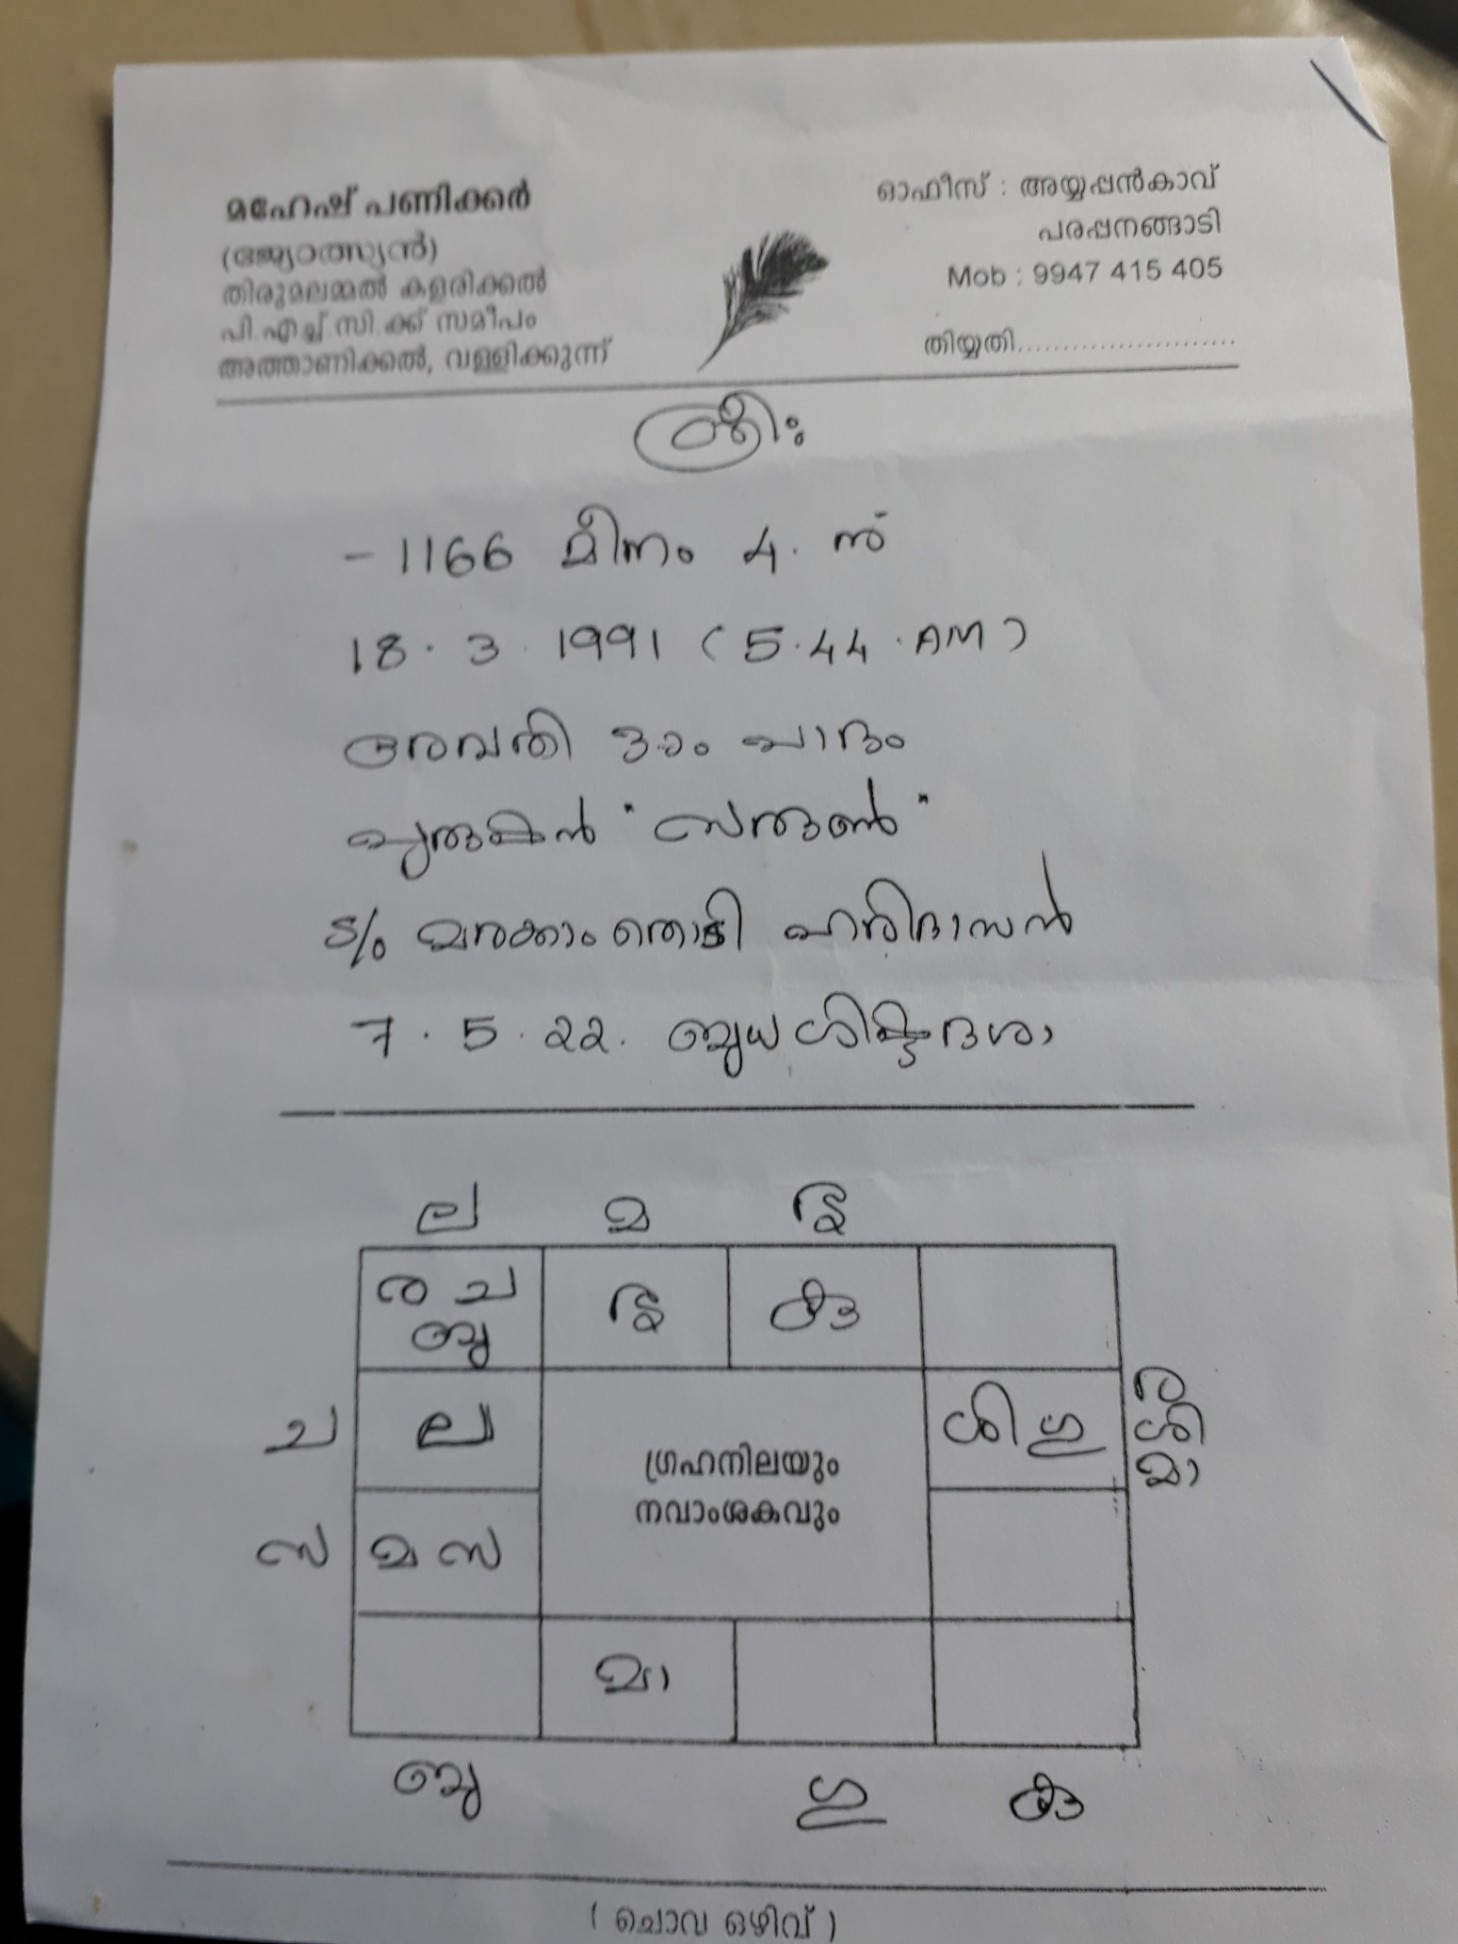 മഹേഷ് പണിക്കർ
(ജ്യോത്സ്യൻ)
തിരുമലമ്മൽ കളരിക്കൽ
പി.എച്ച്.സി.ക്ക് സമീപം
അത്താണിക്കൽ, വള്ളിക്കുന്ന്
ഓഫീസ് : അയ്യപ്പൻകാവ്
പരപ്പനങ്ങാടി
Mob : 9947 415 405
തിയ്യതി........................
- 1166 മീനം 4. ന്
18 . 3 . 1991 ( 5.44 . AM )
രേവതി 3ാം പാദം
പുരുഷൻ
S/o ഹരിദാസൻ
7 . 5 . 22 . ബുധ ശിഷ്ടദശാ
ല മ ഭു
ര ച
ബു
ഭു
കു
ച
ല
ശി ഗു
ര
ശി
മാ
ഗ്രഹനിലയും
നവാംശകവും
സ
മ സ
മാ
ബു ഗു കു
( ചൊവ ഒഴിവ് )